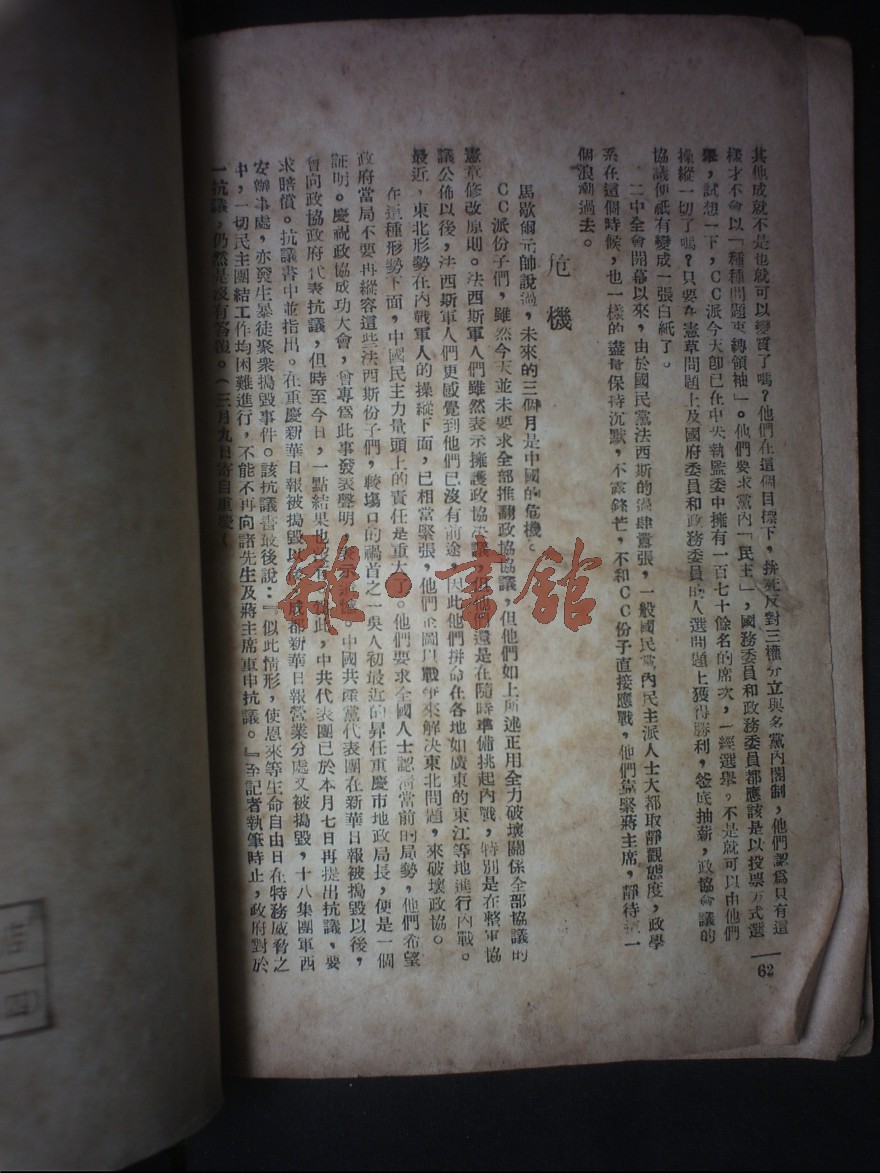 其他成就不是也就可以變質了嗎?他們在這個目標下,拚死反對三權分立與多黨內閣制,他們認爲只有這
樣才不會以「種種問題束縛領袖」。他們要求黨內「民主」,國務委員和政務委員都應該是以投票方式選
舉,試想一下,CC派今天卽已在中央執監委中擁有一百七十餘名的席次,一經選舉,不是就可以由他們
操縱一切了嗎?只要在憲草問題上及國府委員和政務委員的人選問題上獲得勝利,釜底抽薪,政協會議的
協議便祇有變成一張白紙了。
二中全會開幕以來,由於國民黨法西斯的過肆囂張,一般國民黨內民主派人士大都取靜觀態度,政學
系在這個時候,也一樣的盡量保持沉默,不露鋒芒,不和CC份子直接應戰,他們靠緊蔣主席,靜待這一
個浪潮過去。
危機
馬歇爾元帥說過,未來的三個月是中國的危機。
CC派份子們,雖然今天並未要求全部推翻政協協議,但他們如上所述正用全力破壞關係全部協議的
憲章修改原則。法西斯軍人們雖然表示擁護政協決議,但他們還是在隨時準備挑起內戰,特別是在整軍協
議公佈以後,法西斯軍人們更感覺到他們已沒有前途,因此他們拼命在各地如廣東的東江等地進行內戰。
最近,東北形勢在內戰軍人的操縱下面,已相當緊張,他們企圖以戰爭來解決東北問題,來破壞政協。
在這種形勢下面,中國民主力量頭上的責任是重大了。他們要求全國人士認淸當前的局勢,他們希望
政府當局不要再縱容這些法西斯份子們,較塲口的禍首之一吳人初最近的昇任重慶市地政局長,便是一個
証明。慶祝政協成功大會,曾專爲此事發表聲明,表示 中國共產黨代表團在新華日報被搗毀以後,
曾向政協政府代表抗議,但時至今日,一點結果也沒有 此,中共代表團已於本月七日再提出抗議,要
求賠償。抗議書中並指出。在重慶新華日報被搗毀以後 成都新華日報營業分處又被搗毀,十八集團軍西
安辦事處,亦發生暴徒聚衆搗毀事件。該抗議書最後說:『似此情形,使恩來等生命自由日在特務威脅之
中,一切民主團結工作均困難進行,不能不再向諸先生及蔣主席重申抗議。』至記者執筆時止,政府對於
一抗議,仍然是沒有答復。(三月九日寄自重慶)
62
雅·書館
四